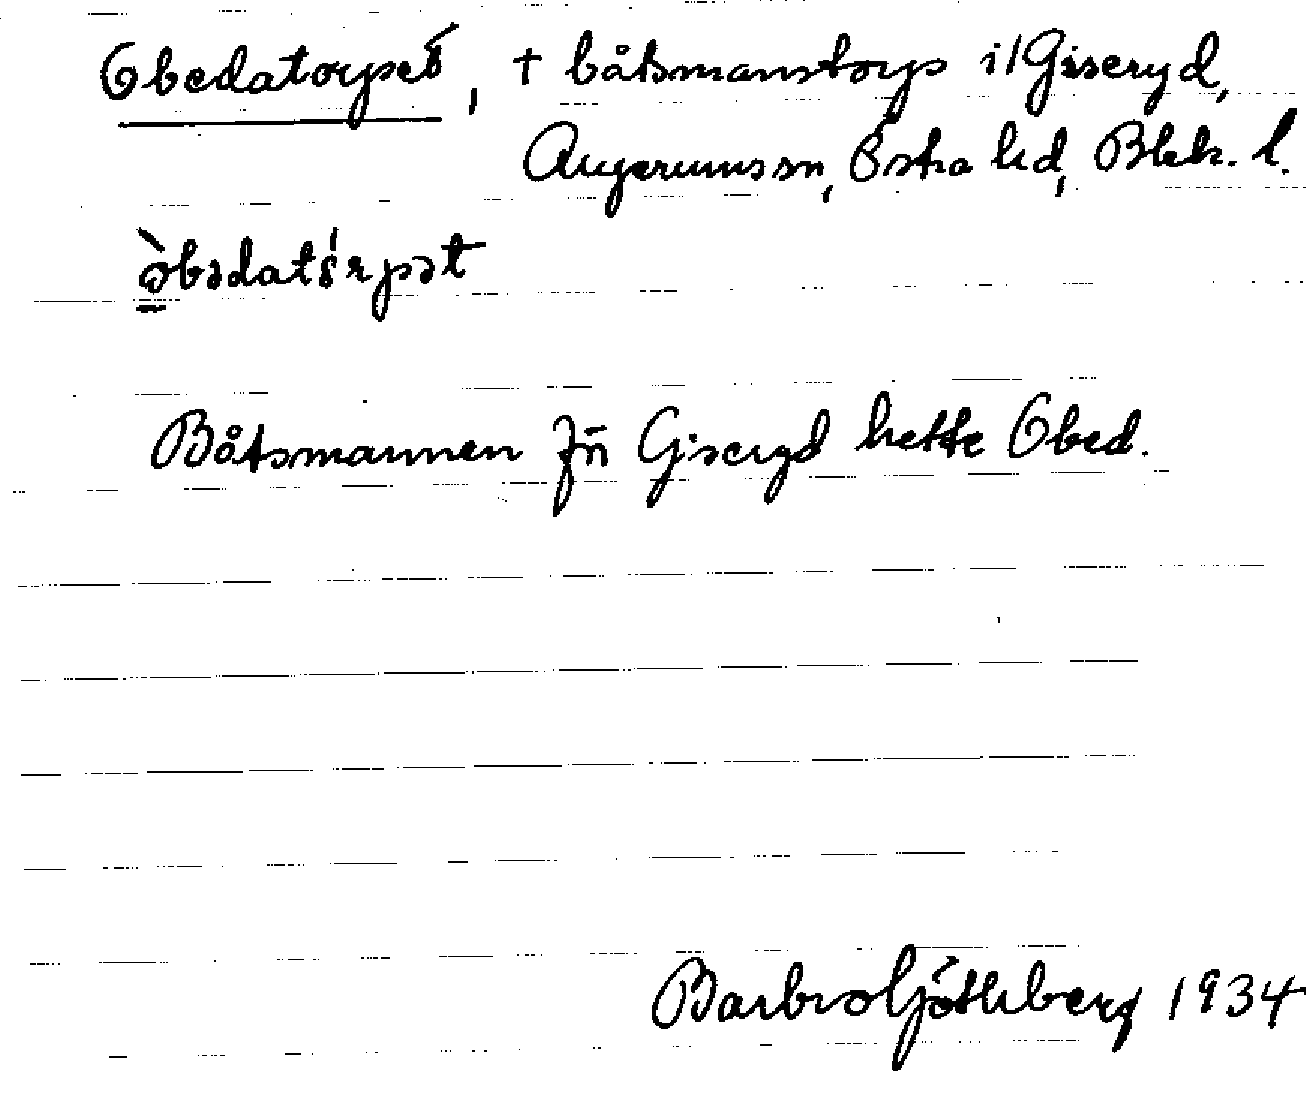 Obedatorpet, † båtsmanstorp i Giseryd,
Augerums sn, Östra hd, Blek. l.
Båtsmannen fn̄ Giseryd hette Obed.
Barbro Göthberg 1934